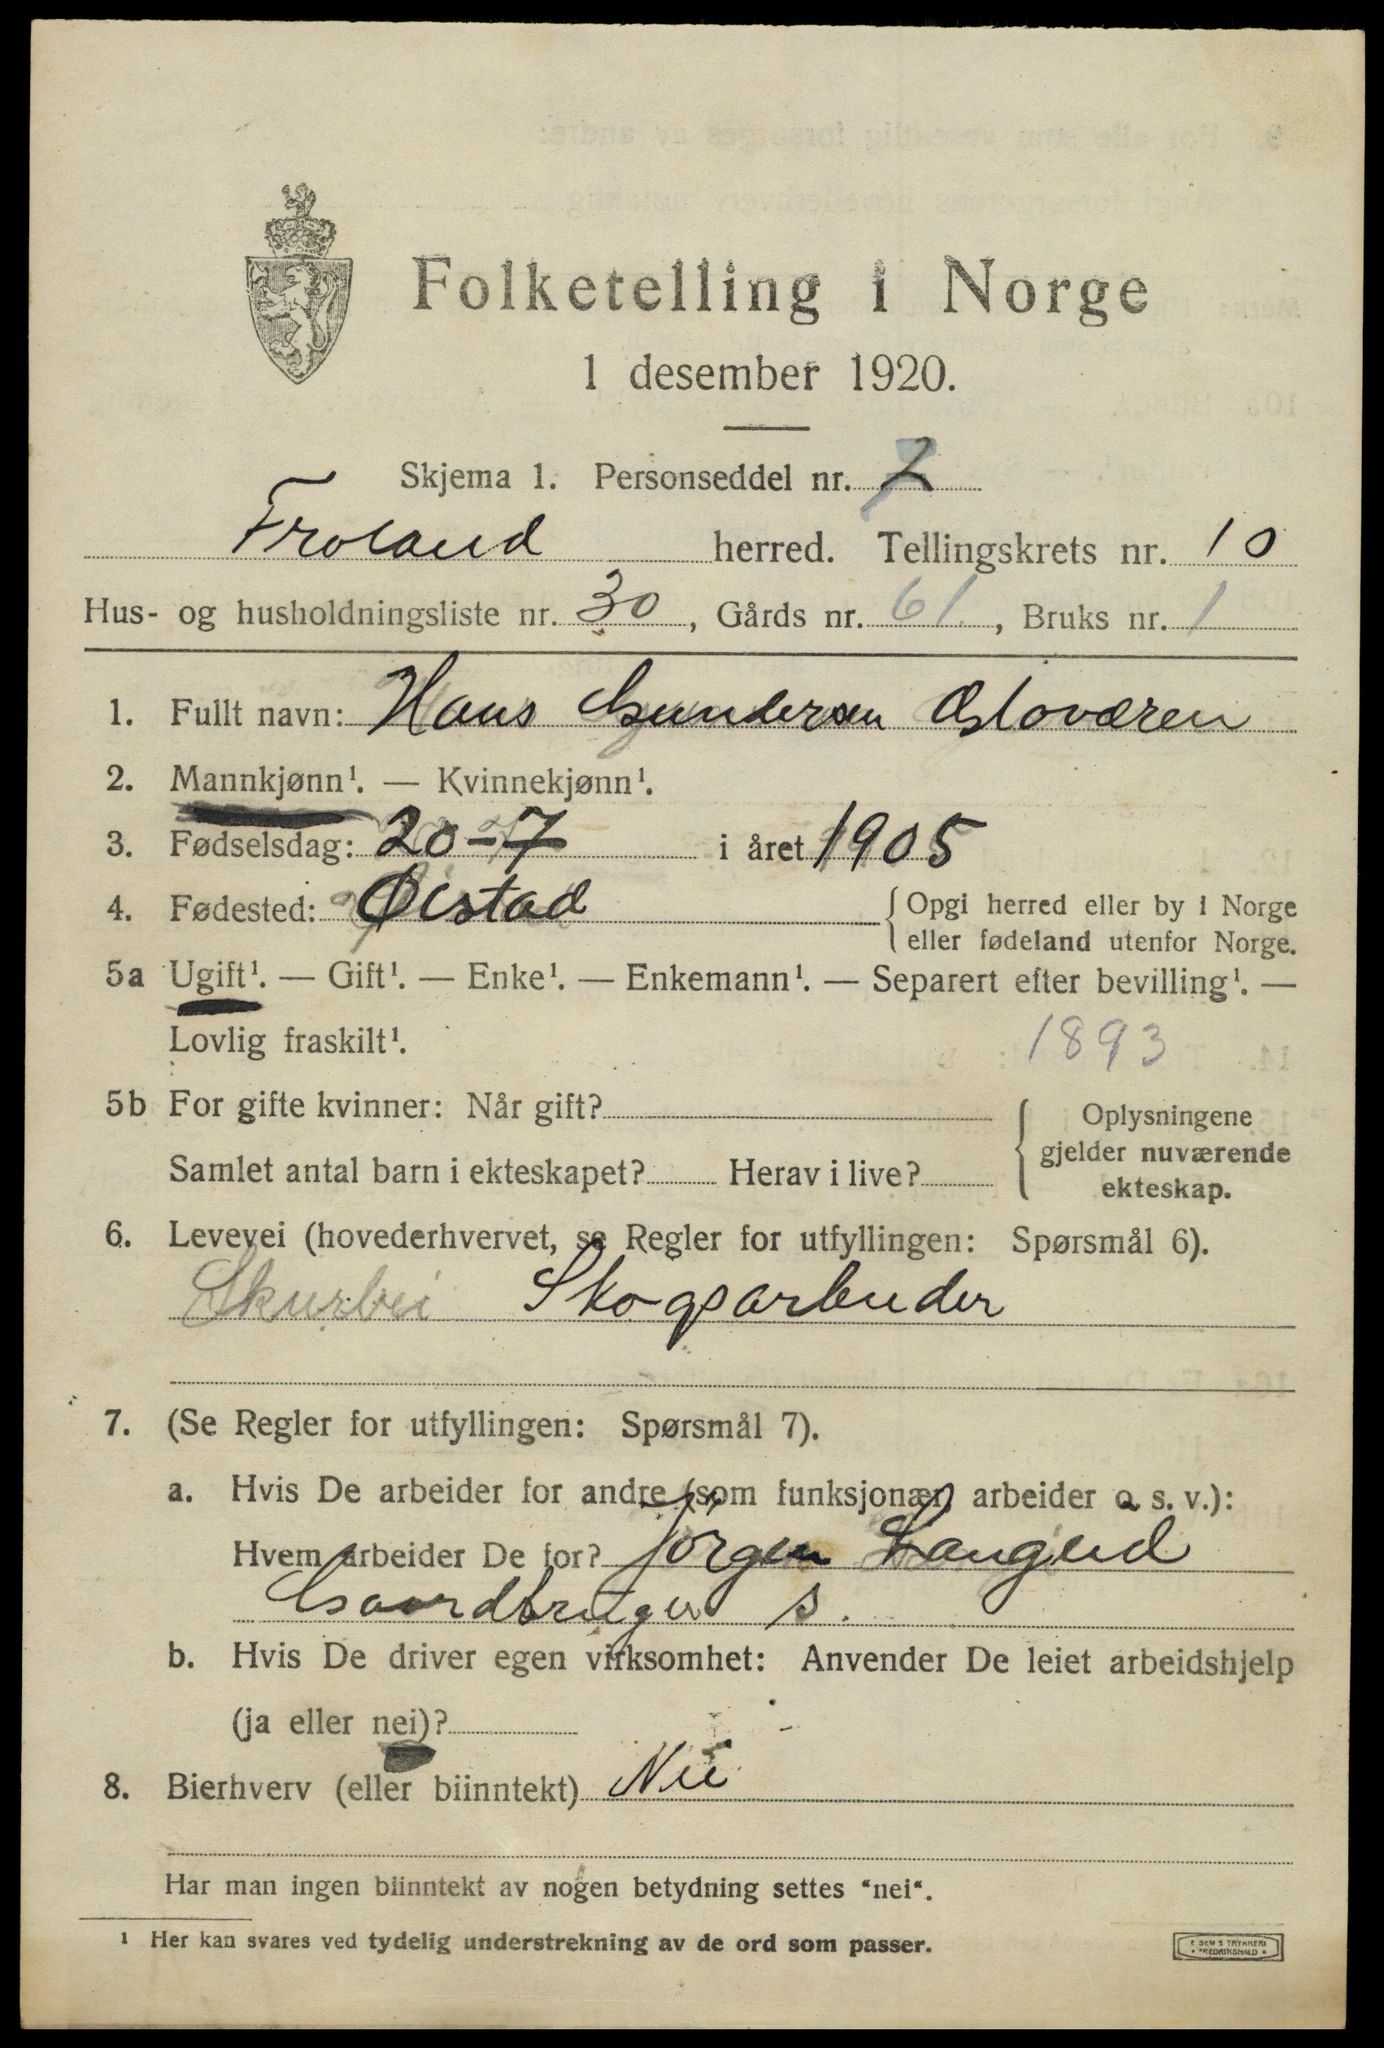 Folketelling i Norge
1 desember 1920.
Skjema 1. Personseddel nr. 7
Froland herred. Tellingskrets nr. 10
Hus- og husholdningsliste nr. 30, Gårds nr. 61, Bruks nr. 1
1. Fullt navn: Hans Gundersen
2. Mannkjønn¹. — Kvinnekjønn¹.
3. Fødselsdag: 20-7 i året 1905
4. Fødested: Øistad {Opgi herred eller by i Norge
eller fødeland utenfor Norge.
5a Ugift¹. — Gift¹. — Enke¹. — Enkemann¹. — Separert efter bevilling¹. —
Lovlig fraskilt¹. 1893
5b For gifte kvinner: Når gift?
Samlet antal barn i ekteskapet? Herav i live?
{Oplysningene
gjelder nuværende
ekteskap.
6. Levevei (hovederhvervet, se Regler for utfyllingen: Spørsmål 6).
Skogsarbeider
7. (Se Regler for utfyllingen: Spørsmål 7).
a. Hvis De arbeider for andre (som funksjonær, arbeider o. s. v.):
Hvem arbeider De for? Jörgen Langlid
Gaardbruger s.
b. Hvis De driver egen virksomhet: Anvender De leiet arbeidshjelp
(ja eller nei)?
8. Bierhverv (eller biinntekt) Nei
Har man ingen biinntekt av nogen betydning settes "nei".
¹ Her kan svares ved tydelig understrekning av de ord som passer.
E SEM'S TRYKKERI
FREDRIKSHALD